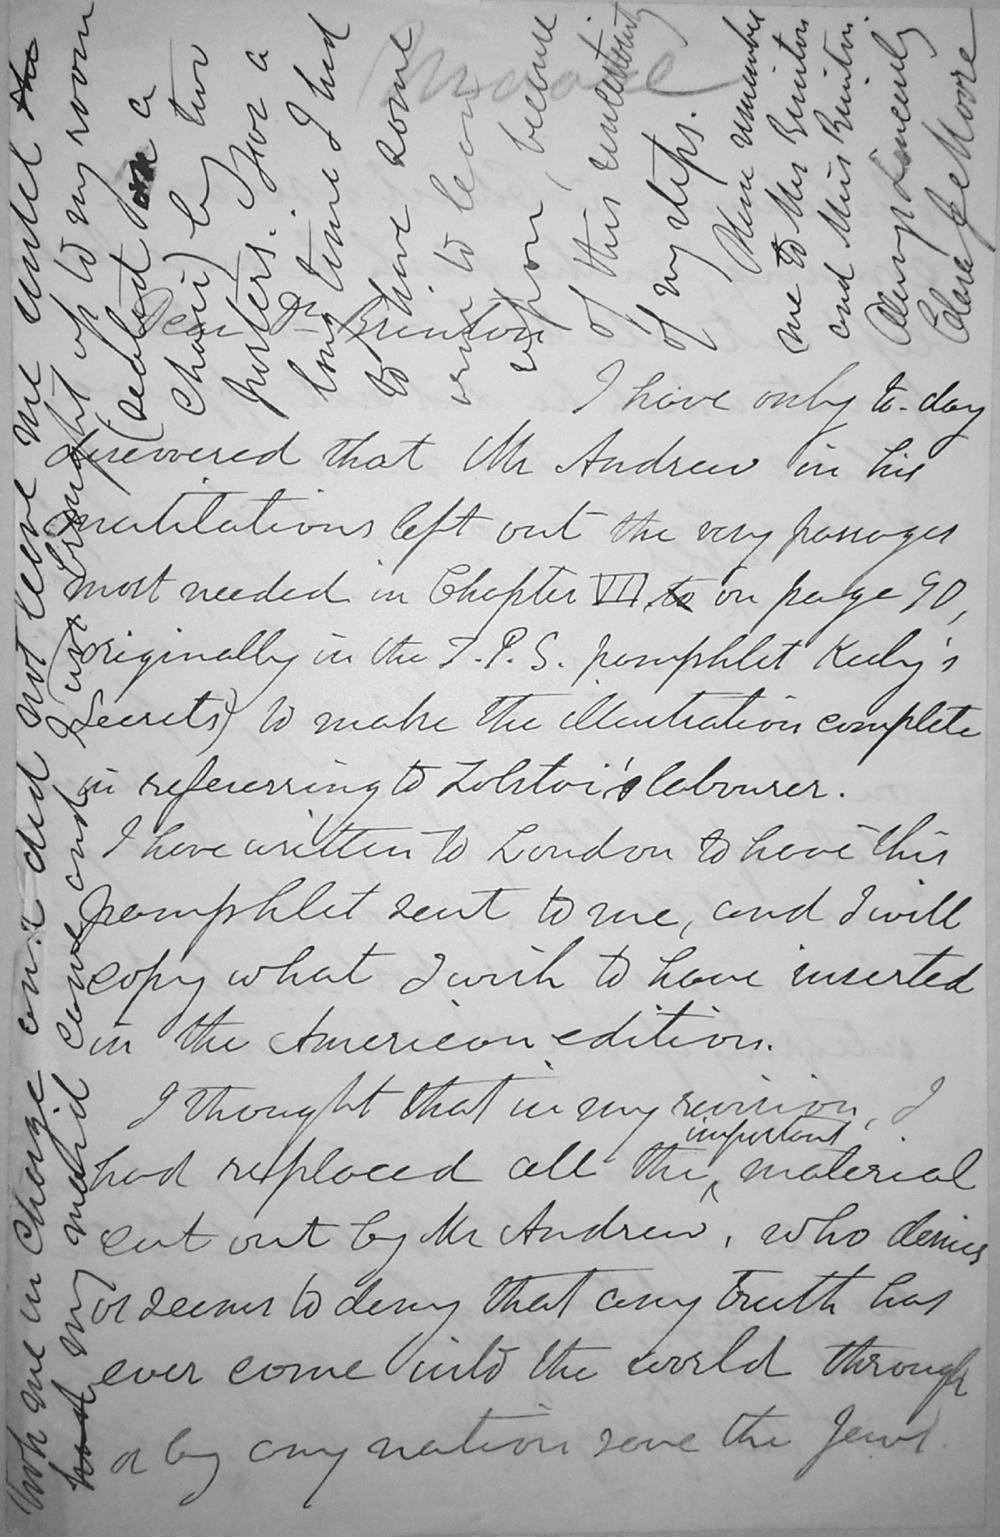 Moore
Dear Dr Brinton
I have only to-day
discovered that Mr Andrew in his
mutilations left out the very passages
most needed in Chapter VII to on page 90,
originally in the T.P.S. pamphlet Keely's
Secrets) to make the illustration complete
in referring to Tolstoi's labourer.
I have written to London to have this
pamphlet sent to me, and I will
copy what I wish to have inserted
in the American edition.
I thought that in my revision, I
had replaced all the important material
cut out by Mr Andrew, who denies
or seems to deny that any truth has
ever come into the world through
or by any nation save the Jews.
took me in charge and did not leave me until the
had my maid came and I was brought up to my room
(seated in a
chair) by two
porters. For a
long time I had
to have some
one to lean
upon, because
of this uncertainty
of my steps.
Then remember
me to Mrs Brinton
and Miss Brinton.
Always sincerely
Clara J. Moore